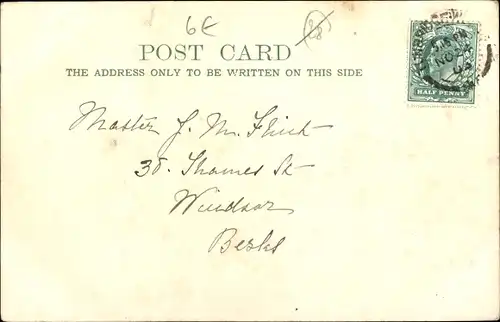 6€
POST CARD
THE ADDRESS ONLY TO BE WRITTEN ON THIS SIDE
HALF PENNY
Master J. M. Flint
38. Thames St
Windsor
Berks